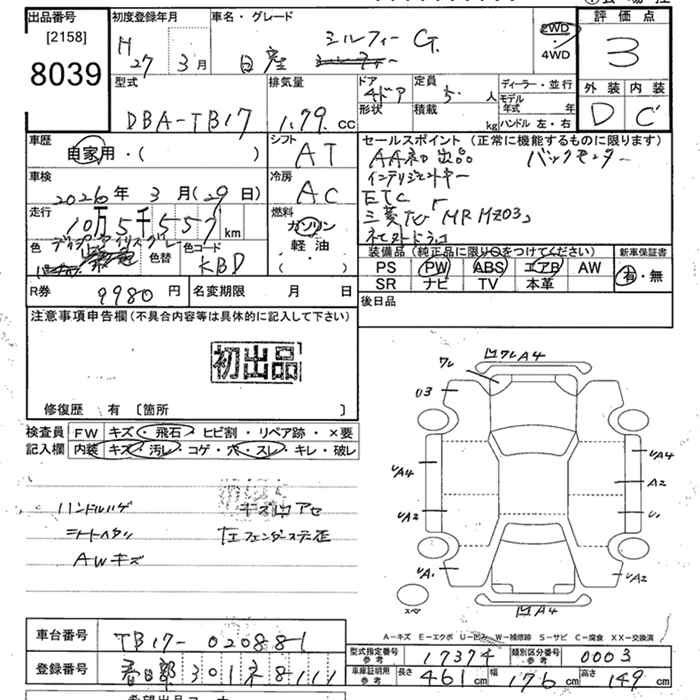 出品番号 初度登録年月 車名・グレード 評価点
[2158]
8039
H 27年 3月 日産 シルフィー G
2WD
4WD
3
型式 排気量 ドア 定員 ディーラー・並行 外装 内装
DBA-TB17 1.79 cc 4ドア 5 人
形状 積載 kg モデル年式 年
ハンドル 左・右
D C
車歴 シフト セールスポイント(正常に機能するものに限ります)
自家用・( ) AT
車検 冷房
2026年 3月(29日) AC
走行 燃料
10万5千557km ガソリン
軽油
( ・ )
AAネ初出品 バックモニター
インテリジェントキー
ETC
色 色替 色コード
KBD
装備品(純正品に限り○をつけてください) 新車保証書
PS PW ABS エアB AW 有・無
SR ナビ TV 本革
R券 9980円 名変期限 月 日
後日品
注意事項申告欄(不具合内容等は具体的に記入して下さい)
初出品
修復歴 有 〔箇所 〕
検査員 FW キズ・飛石・ヒビ割・リペア跡・×要
記入欄 内装 キズ・汚レ・コゲ・穴・スレ・キレ・破レ
ハンドルハゲ キズ凹アセ
シートヘタリ
AWキズ
ワレ 凹ワレA4
U3
UA4 UA4
A2
UA2 U1
UA1 UA2
スペ 凹A4
A-キズ E-エクボ U-凹み W-補修跡 S-サビ C-腐食 XX-交換済
車台番号 TB17-020881
登録番号 春日部 301 ネ8111
型式指定番号 参考 17374 類別区分番号 参考 0003
車庫証明用 参考 長さ 461cm 幅 176cm 高さ 149cm